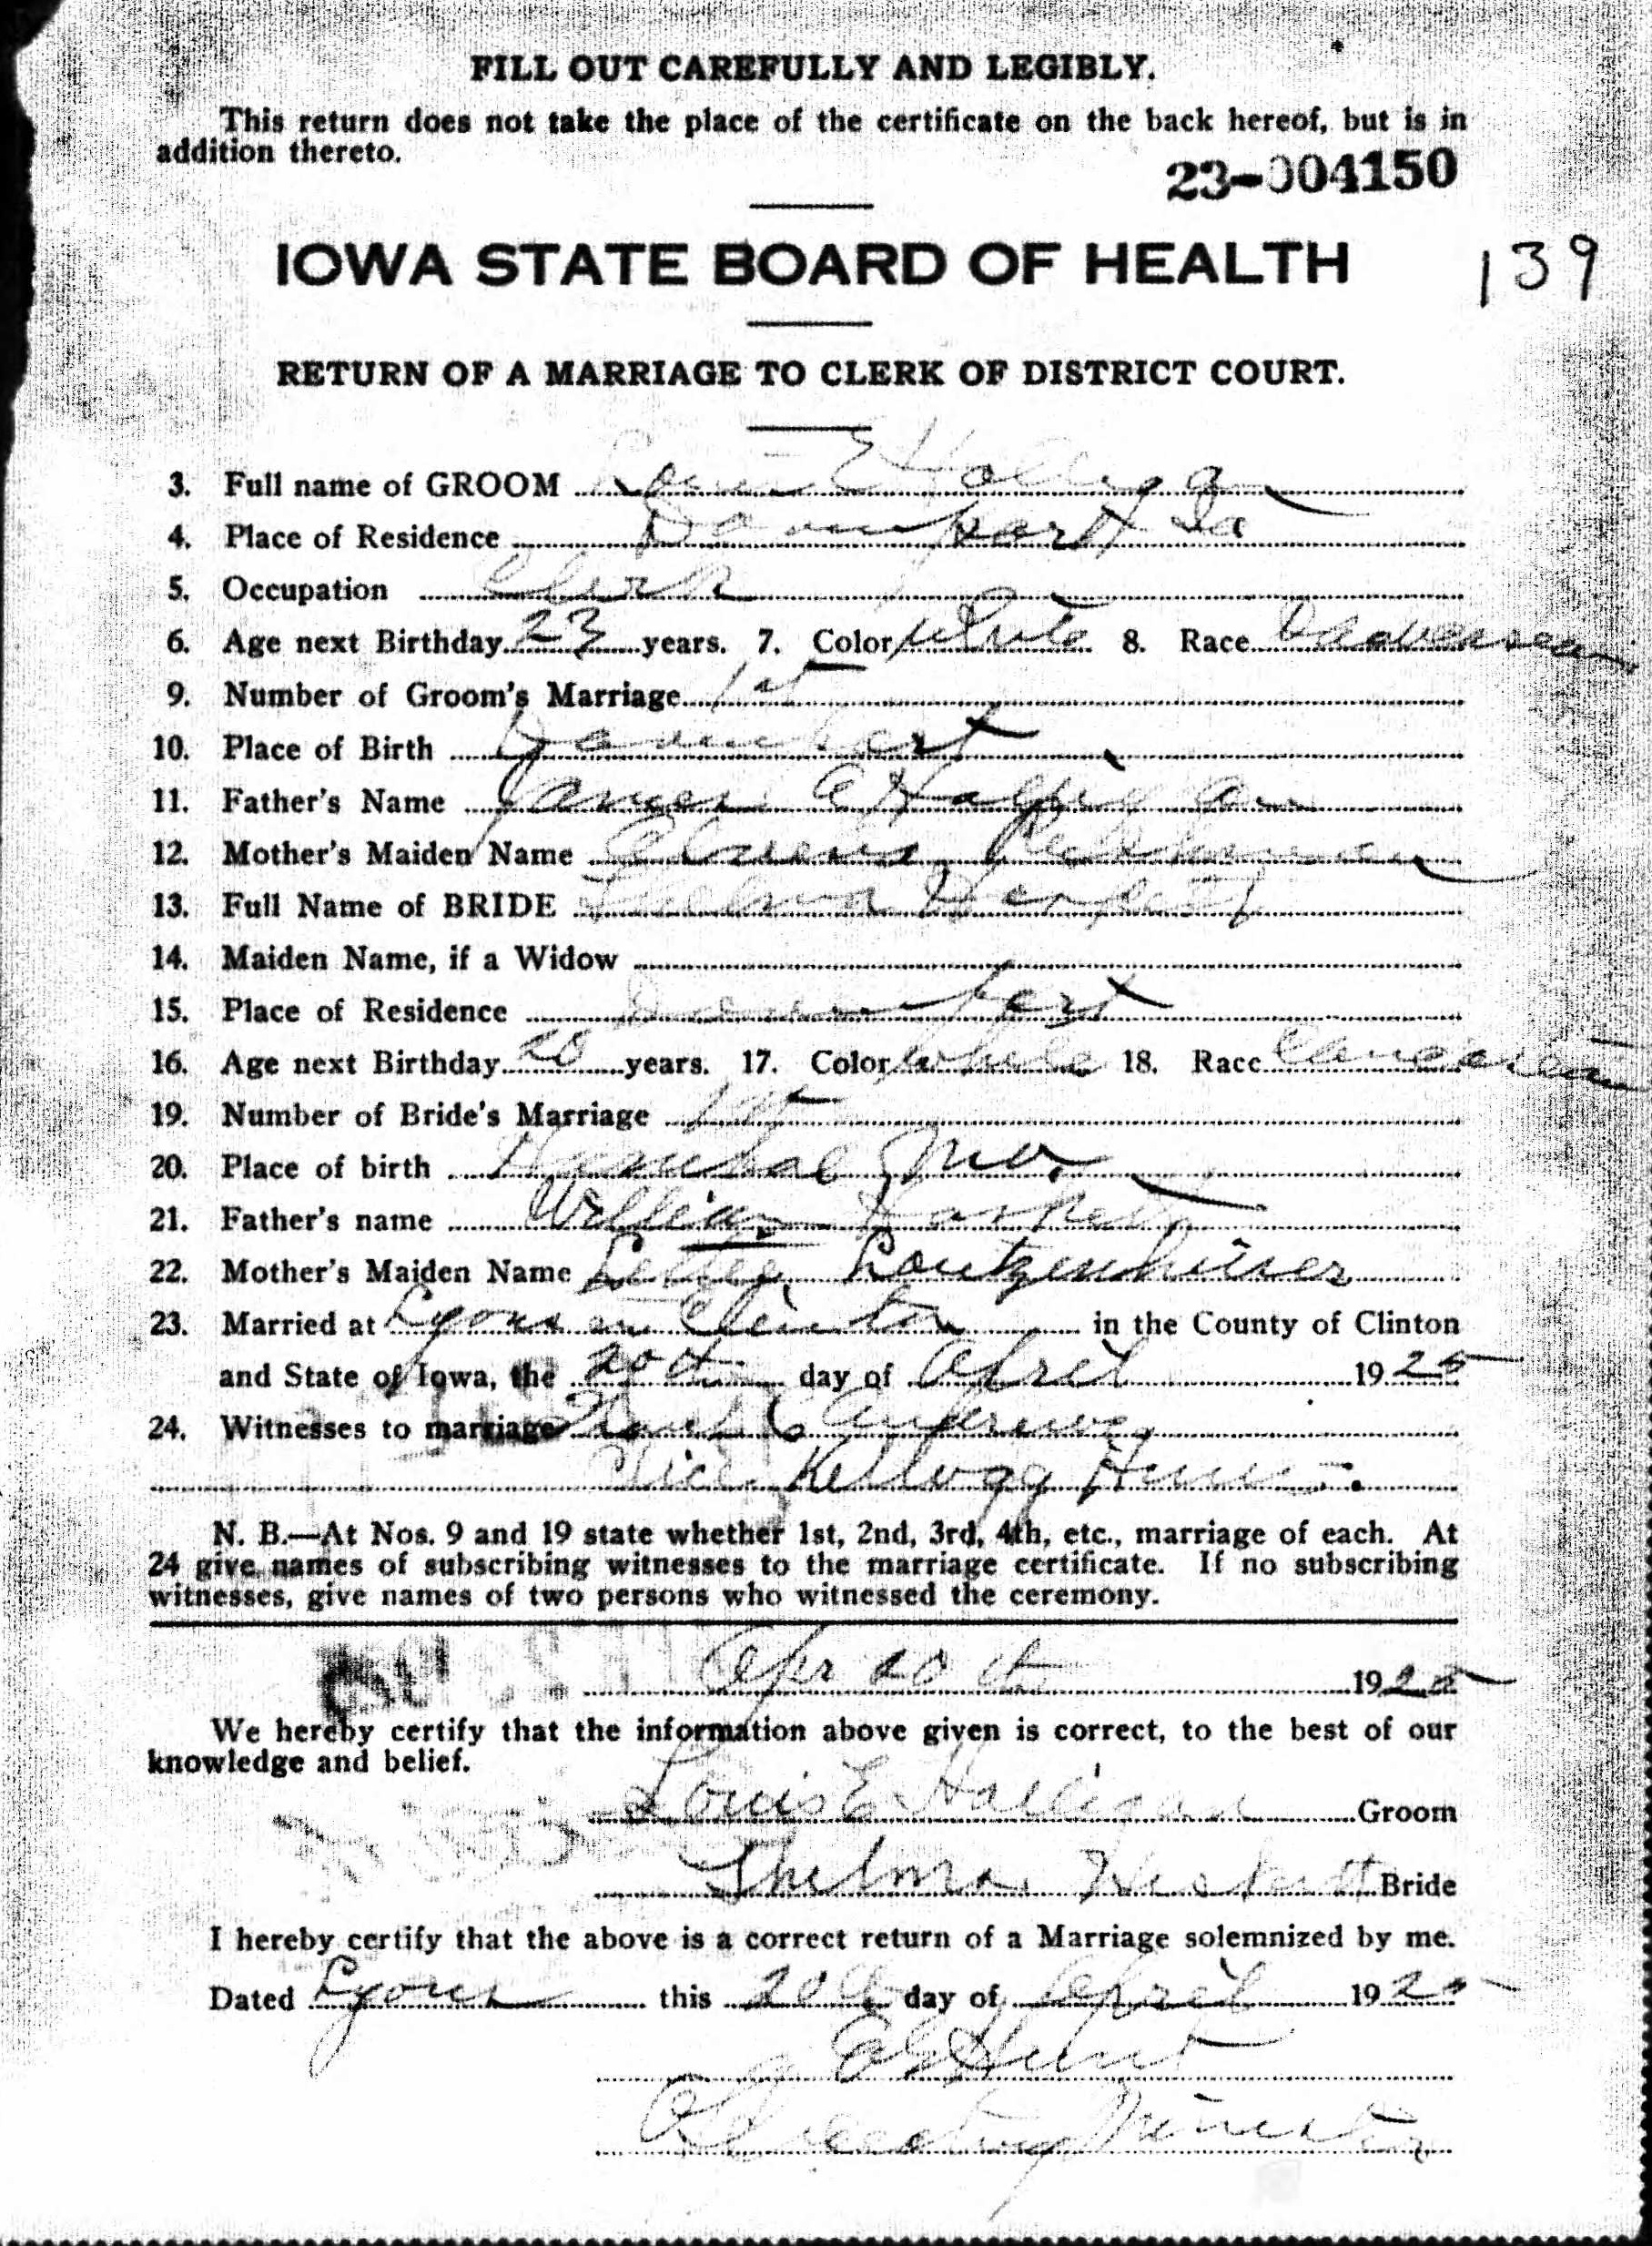 FILL OUT CAREFULLY AND LEGIBLY.
This return does not take the place of the certificate on the back hereof, but is in
addition thereto.
23-004150
IOWA STATE BOARD OF HEALTH 139
RETURN OF A MARRIAGE TO CLERK OF DISTRICT COURT.
3. Full name of GROOM Louis E
4. Place of Residence Davenport Ia
5. Occupation Clerk
6. Age next Birthday 23 years. 7. Color White 8. Race
9. Number of Groom's Marriage 1st
10. Place of Birth Davenport
11. Father's Name James
12. Mother's Maiden Name
13. Full Name of BRIDE Thelma
14. Maiden Name, if a Widow
15. Place of Residence Davenport
16. Age next Birthday 20 years. 17. Color White 18. Race Caucasian
19. Number of Bride's Marriage 1st
20. Place of birth Hannibal Mo.
21. Father's name William
22. Mother's Maiden Name Loutzenhiser
23. Married at Lyons in Clinton in the County of Clinton
and State of Iowa, the 20th day of April 1925
24. Witnesses to marriage Andrews
Alice Kellogg
N. B.—At Nos. 9 and 19 state whether 1st, 2nd, 3rd, 4th, etc., marriage of each. At
24 give names of subscribing witnesses to the marriage certificate. If no subscribing
witnesses, give names of two persons who witnessed the ceremony.
Apr 20th 1925
We hereby certify that the information above given is correct, to the best of our
knowledge and belief.
Louis E. Halligan Groom
Thelma Bride
I hereby certify that the above is a correct return of a Marriage solemnized by me.
Dated Lyons this 20th day of April 1925
Hunt
Officiating Minister